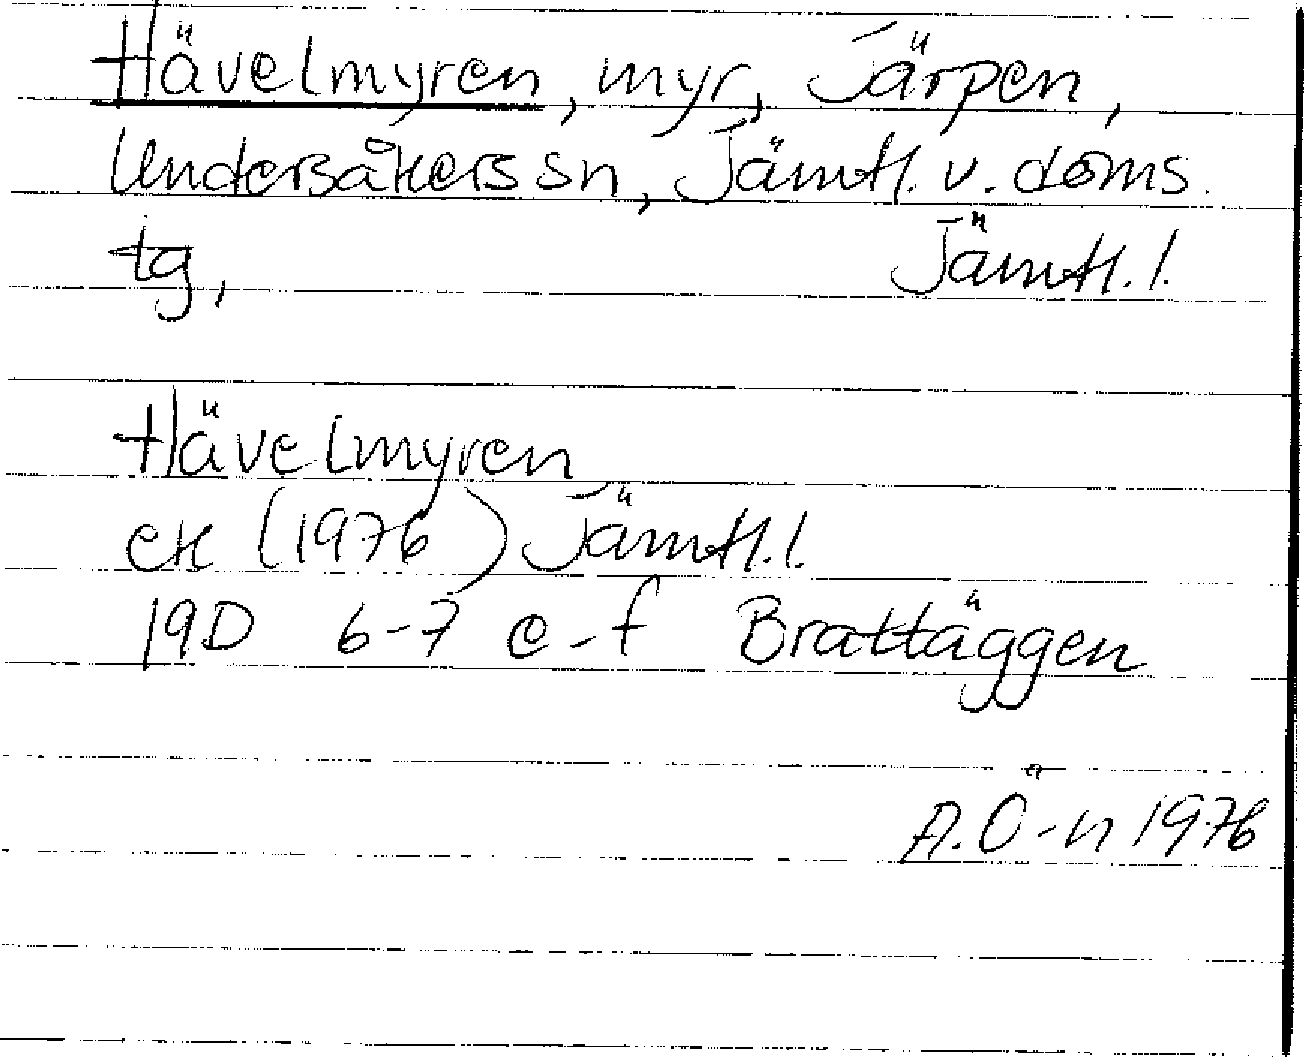 Hävelmyren, myr, Järpen,
Undersåkers sn, Jämtl. v. doms.
tg, Jämtl. l.
Hävelmyren
ek (1976) Jämtl. l.
19D 6-7 e-f Brattäggen
A.Ö-n 1976